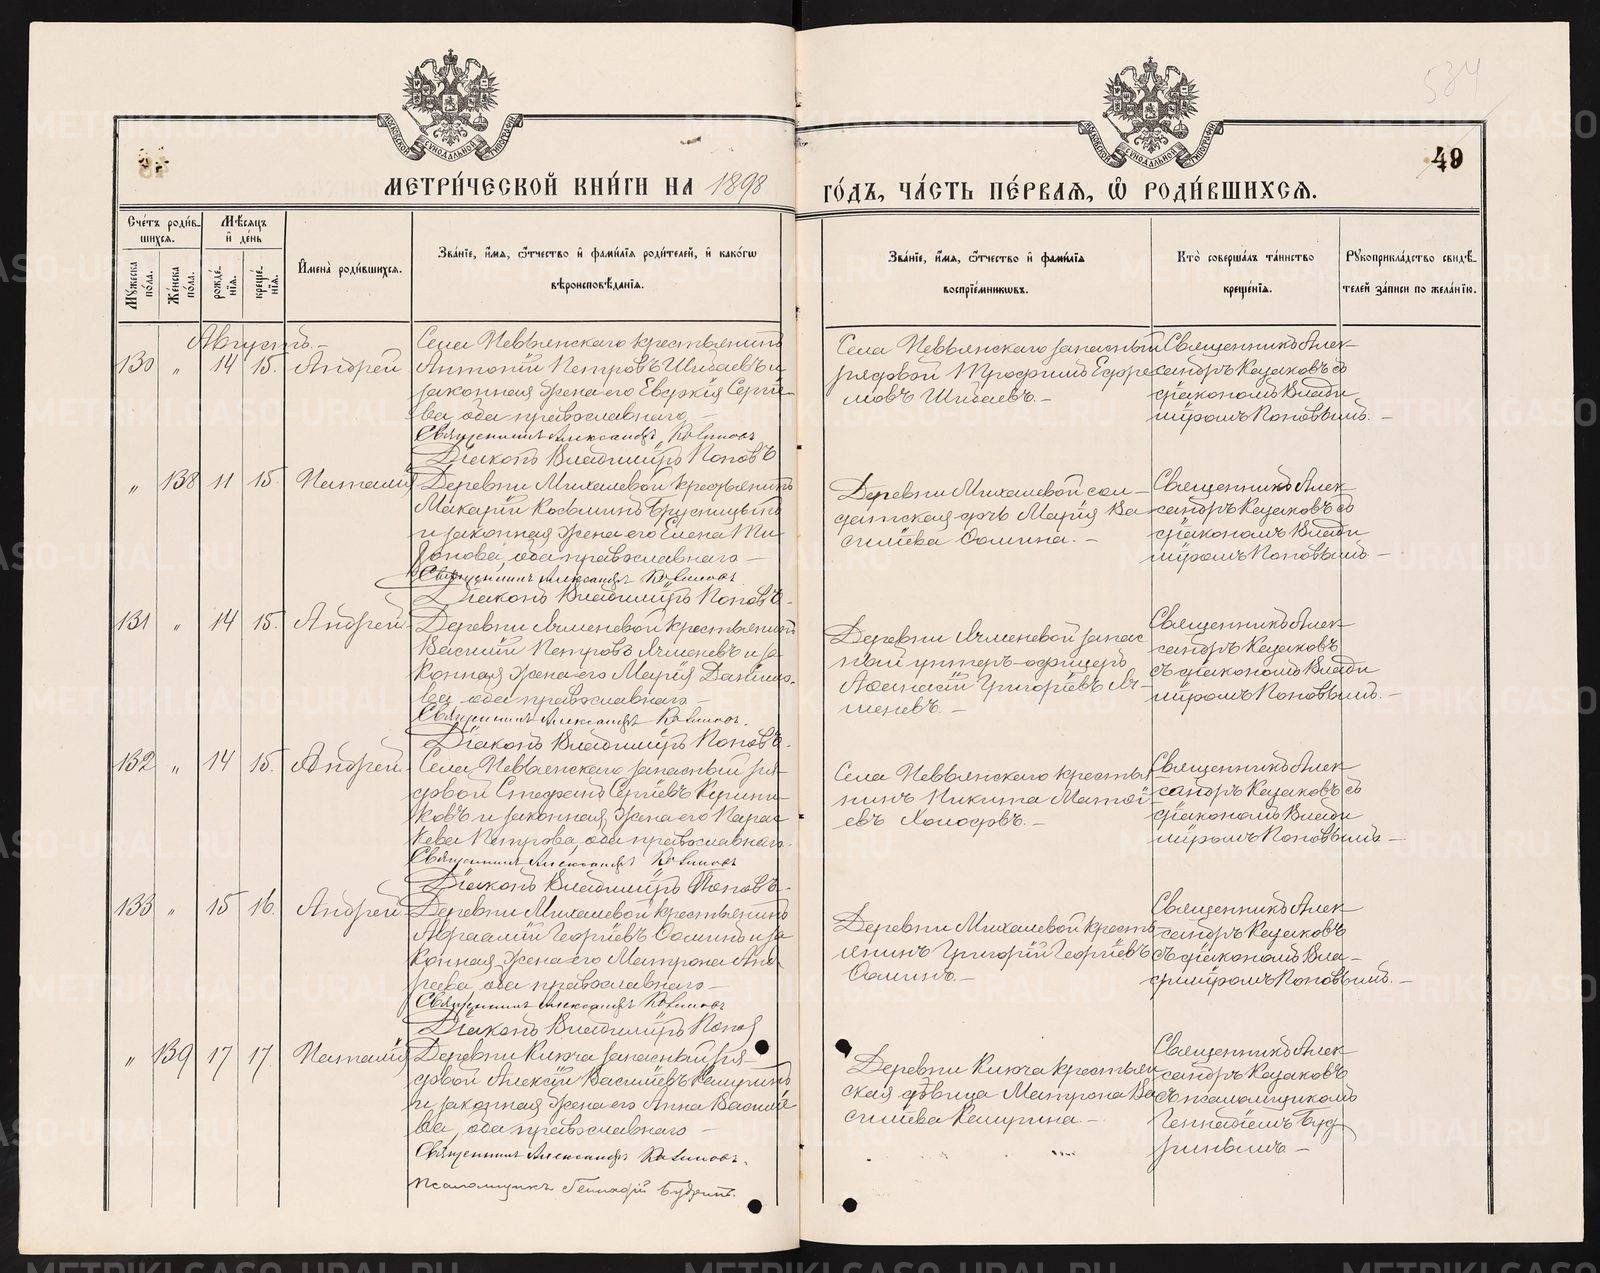 534
49
МЕТРИ́ЧЕСКОЙ КНИ́ГИ НА 1898
ГО́ДЪ, ЧА́СТЬ ПЕ́РВАЯ, Ѡ҆ РОДИ́ВШИХСЯ.
Сче́тъ роди́в-
шихся.
Мѣ́сяцъ
и҆ де́нь
Мꙋ́жеска по́ла.
Же́нска по́ла.
рожде́-
нїя.
креще́-
нїя.
И҆мена̀ роди́вшихся.
Зва́нїе, и҆́мя, ѻ҆́тчество и҆ фами́лїя роди́телей, и҆ како́гѡ
вѣроисповѣ́данїя.
Зва́нїе, и҆́мя, ѻ҆́тчество и҆ фами́лїя
воспрїе́мникѡвъ.
Кто̀ соверша́лъ та́инство
креще́нїя.
Рꙋкоприкла́дство свидѣ́-
телей за́писи по жела́нїю.
Августъ.-
130 " 14 15. Андрей
Села Невьянскаго крестьянинъ
Антоній Петровъ Шибаевъ и
законная жена его Евдокія Сергѣе-
ва, оба православнаго.-
Священникъ Александръ Казаковъ
Діаконъ Владиміръ Поповъ
Села Невьянскаго запасный
рядовой Трофимъ Ефре-
мовъ Шибаевъ.-
Священникъ Алек-
сандръ Казаковъ съ
діакономъ Влади
міромъ Поповымъ.-
" 138 11 15. Наталія
Деревни Михалевой крестьянинъ
Макарій Косьминъ Брусницынъ
и законная жена его Елена
оба православнаго-
Священникъ Александръ Казаковъ
Діаконъ Владиміръ Поповъ.
Деревни Михалевой сол-
датская дочь Марія Ва-
сильева Ѳомина.-
Священникъ Алек
сандръ Казаковъ съ
діакономъ Влади
міромъ Поповымъ-
131 " 14 15. Андрей
Деревни Ячменевой крестьянинъ
Василій Петровъ Ячменевъ и за
конная жена его Марія Данило-
ва, оба православнаго-
Священникъ Александръ Казаковъ.
Діаконъ Владиміръ Поповъ.
Деревни Ячменевой запас
ный унтеръ-офицеръ
Аѳанасій Григорьевъ Яч-
меневъ.-
Священникъ Алек
сандръ Казаковъ
съ діакономъ Влади
міромъ Поповымъ.-
132 " 14 15. Андрей
Села Невьянскаго запасный ря-
довой Стефанъ Сергѣевъ
и законная жена его Парас-
кева Петрова, оба православнаго.
Священникъ Александръ Казаковъ
Діаконъ Владиміръ Поповъ.
Села Невьянскаго крестья
нинъ Никита Матѳі-
евъ Холодовъ.-
Священникъ Алек
сандръ Казаковъ съ
діакономъ Влади
міромъ Поповымъ-
133 " 15 16. Андрей
Деревни Михалевой крестьянинъ
Авраамій Георгіевъ Ѳоминъ и за
конная жена его Матрона Анд-
реева, оба православнаго-
Священникъ Александръ Казаковъ
Діаконъ Владиміръ Попов
Деревни Михалевой кресть-
янинъ Григорій Георгіевъ
Ѳоминъ.-
Священникъ Алек
сандръ Казаковъ
съ діакономъ Вла-
диміромъ Поповымъ.-
" 139 17 17. Наталія
Деревни Ключа запасный ря-
довой Алексѣй Васильевъ
и законная жена его Анна Василье
ва, оба православнаго-
Священникъ Александръ Казаковъ.
Псаломщикъ Геннадій Будринъ.
Деревни Ключа крестьян
ская дѣвица Матрона Ва
сильева
Священникъ Алек
сандръ Казаковъ
съ псаломщикомъ
Геннадіемъ Буд
ринымъ-
METRIKI.GASO-URAL.RU